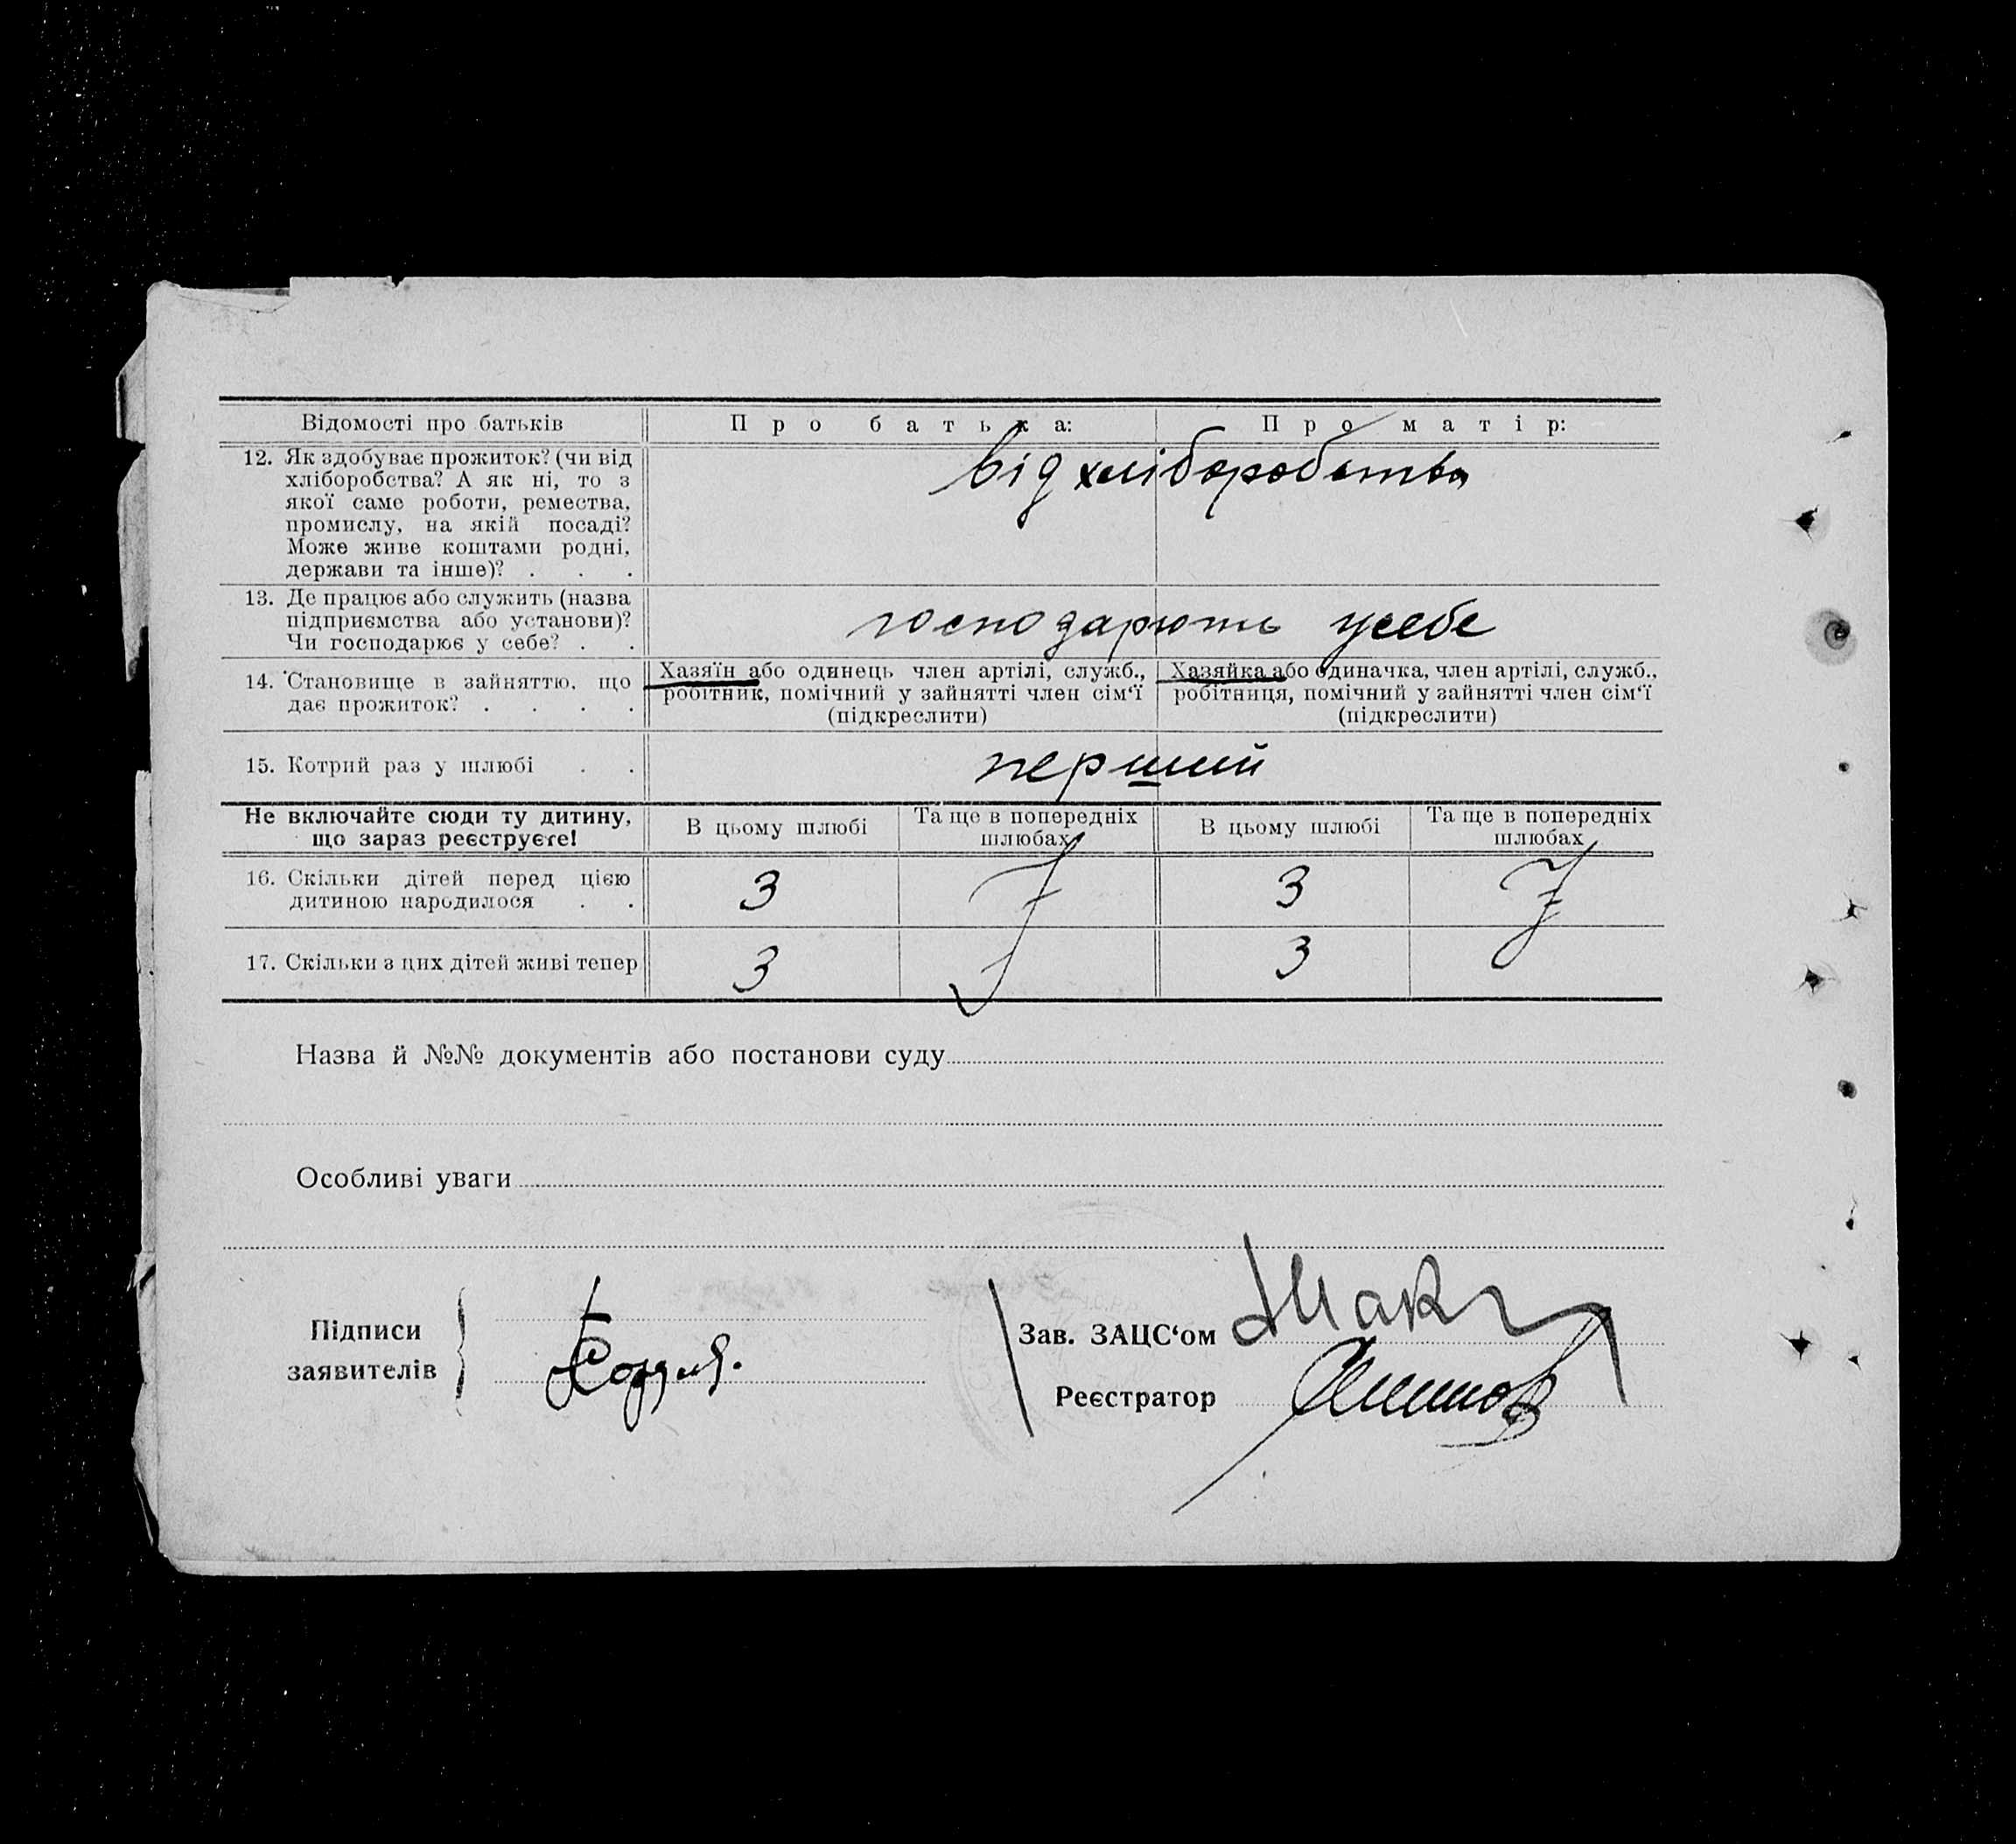 Відомості про батьків
Про батька:
Про матір:
12. Як здобуває прожиток? (чи від
хліборобства? А як ні, то з
якої саме роботи, ремества,
промислу, на якій посаді?
Може живе коштами родні,
держави та інше)? . . .
від хліборобства
13. Де працює або служить (назва
підприємства або установи)?
Чи господарює у себе? . .
господарюють у себе
14. Становище в зайняттю, що
дає прожиток? . . . .
Хазяїн або одинець член артілі, служб.,
робітник, помічний у зайнятті член сім‘ї
(підкреслити)
Хазяйка або одиначка, член артілі, служб.,
робітниця, помічний у зайнятті член сім‘ї
(підкреслити)
15. Котрий раз у шлюбі . .
перший
Не включайте сюди ту дитину,
що зараз реєструєте!
В цьому шлюбі
Та ще в попередніх
шлюбах
В цьому шлюбі
Та ще в попередніх
шлюбах
16. Скільки дітей перед цією
дитиною народилося . .
3
3
17. Скільки з цих дітей живі тепер
3
3
Назва й №№ документів або постанови суду
Особливі уваги
Підписи
заявителів
Зав. ЗАЦС‘ом
Реєстратор